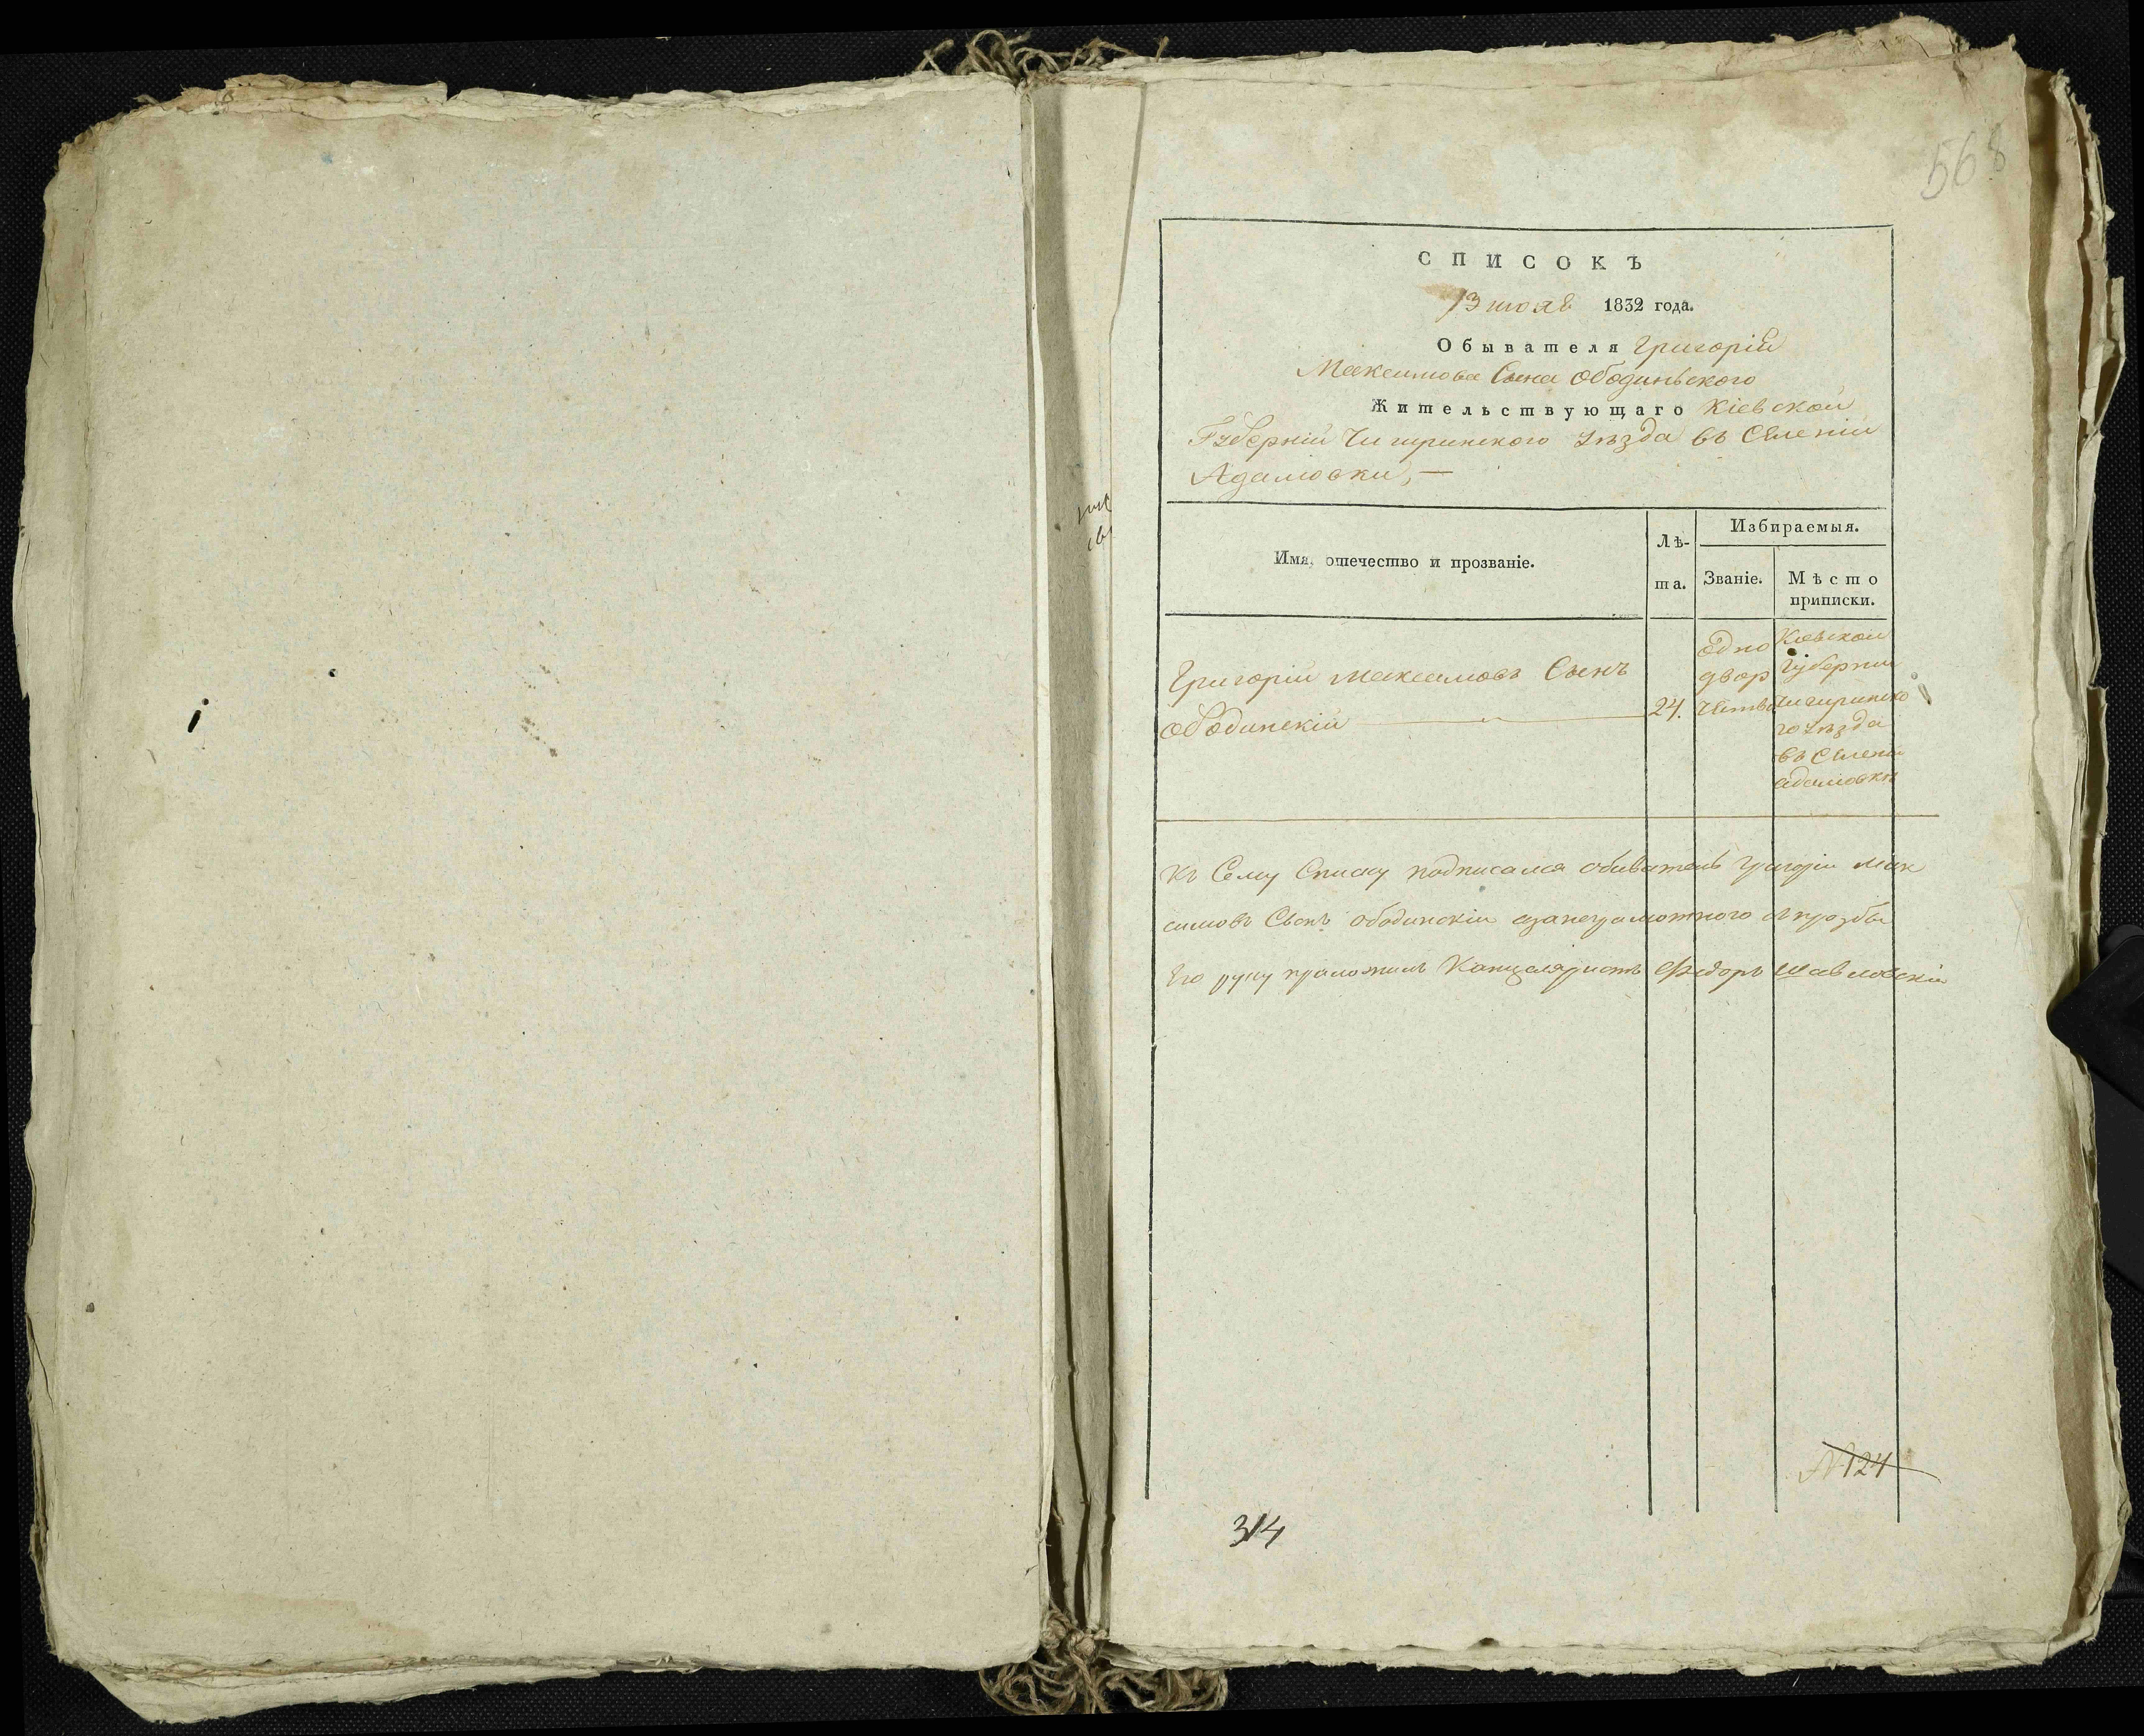 568
СПИСОКЪ
13 июля 1832 года.
Обывателя Григорія
Максимова Сына Ободинского
Жительствующаго Кіевской
Губерніи Чигиринского уѣзда въ Селеніи
Адамовки,—
Имя, отечество и прозваніе.
Лѣ-
та.
Избираемыя.
Званіе.
Мѣсто
приписки.
Григорій Максимовъ Сынъ
Ободинскій
24.
одно
двор
чество
Кіевской
Губерніи
Чигиринско
го уѣзда
въ Селеніи
адамовкѣ
Къ Сему Списку подписался обиватель Григорій Мак
симовъ Сынъ ободинскій азанеграмотного прозбы
Его руку приложилъ Канцеляристъ Федоръ
№124
314